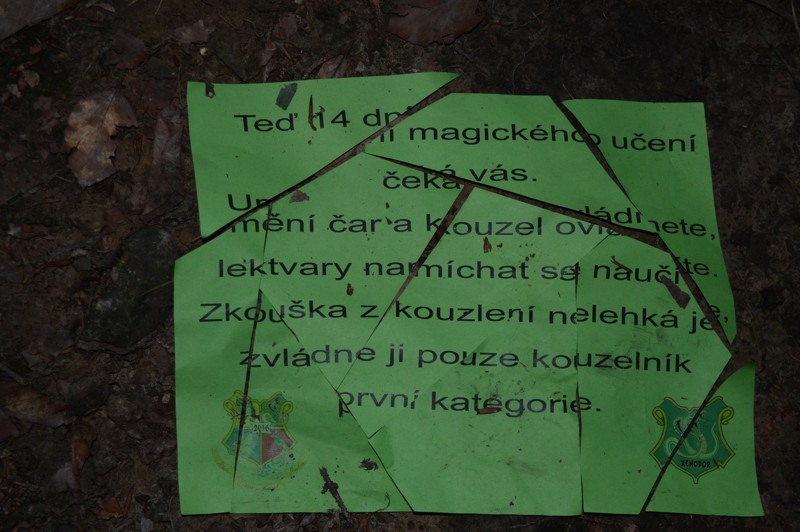 Teď 14 dní magického učení
čeká vás.
Umění čar a kouzel ovládnete,
lektvary namíchat se naučíte.
Zkouška z kouzlení nelehká je,
zvládne ji pouze kouzelník
první kategorie.
2016
XEWODOR